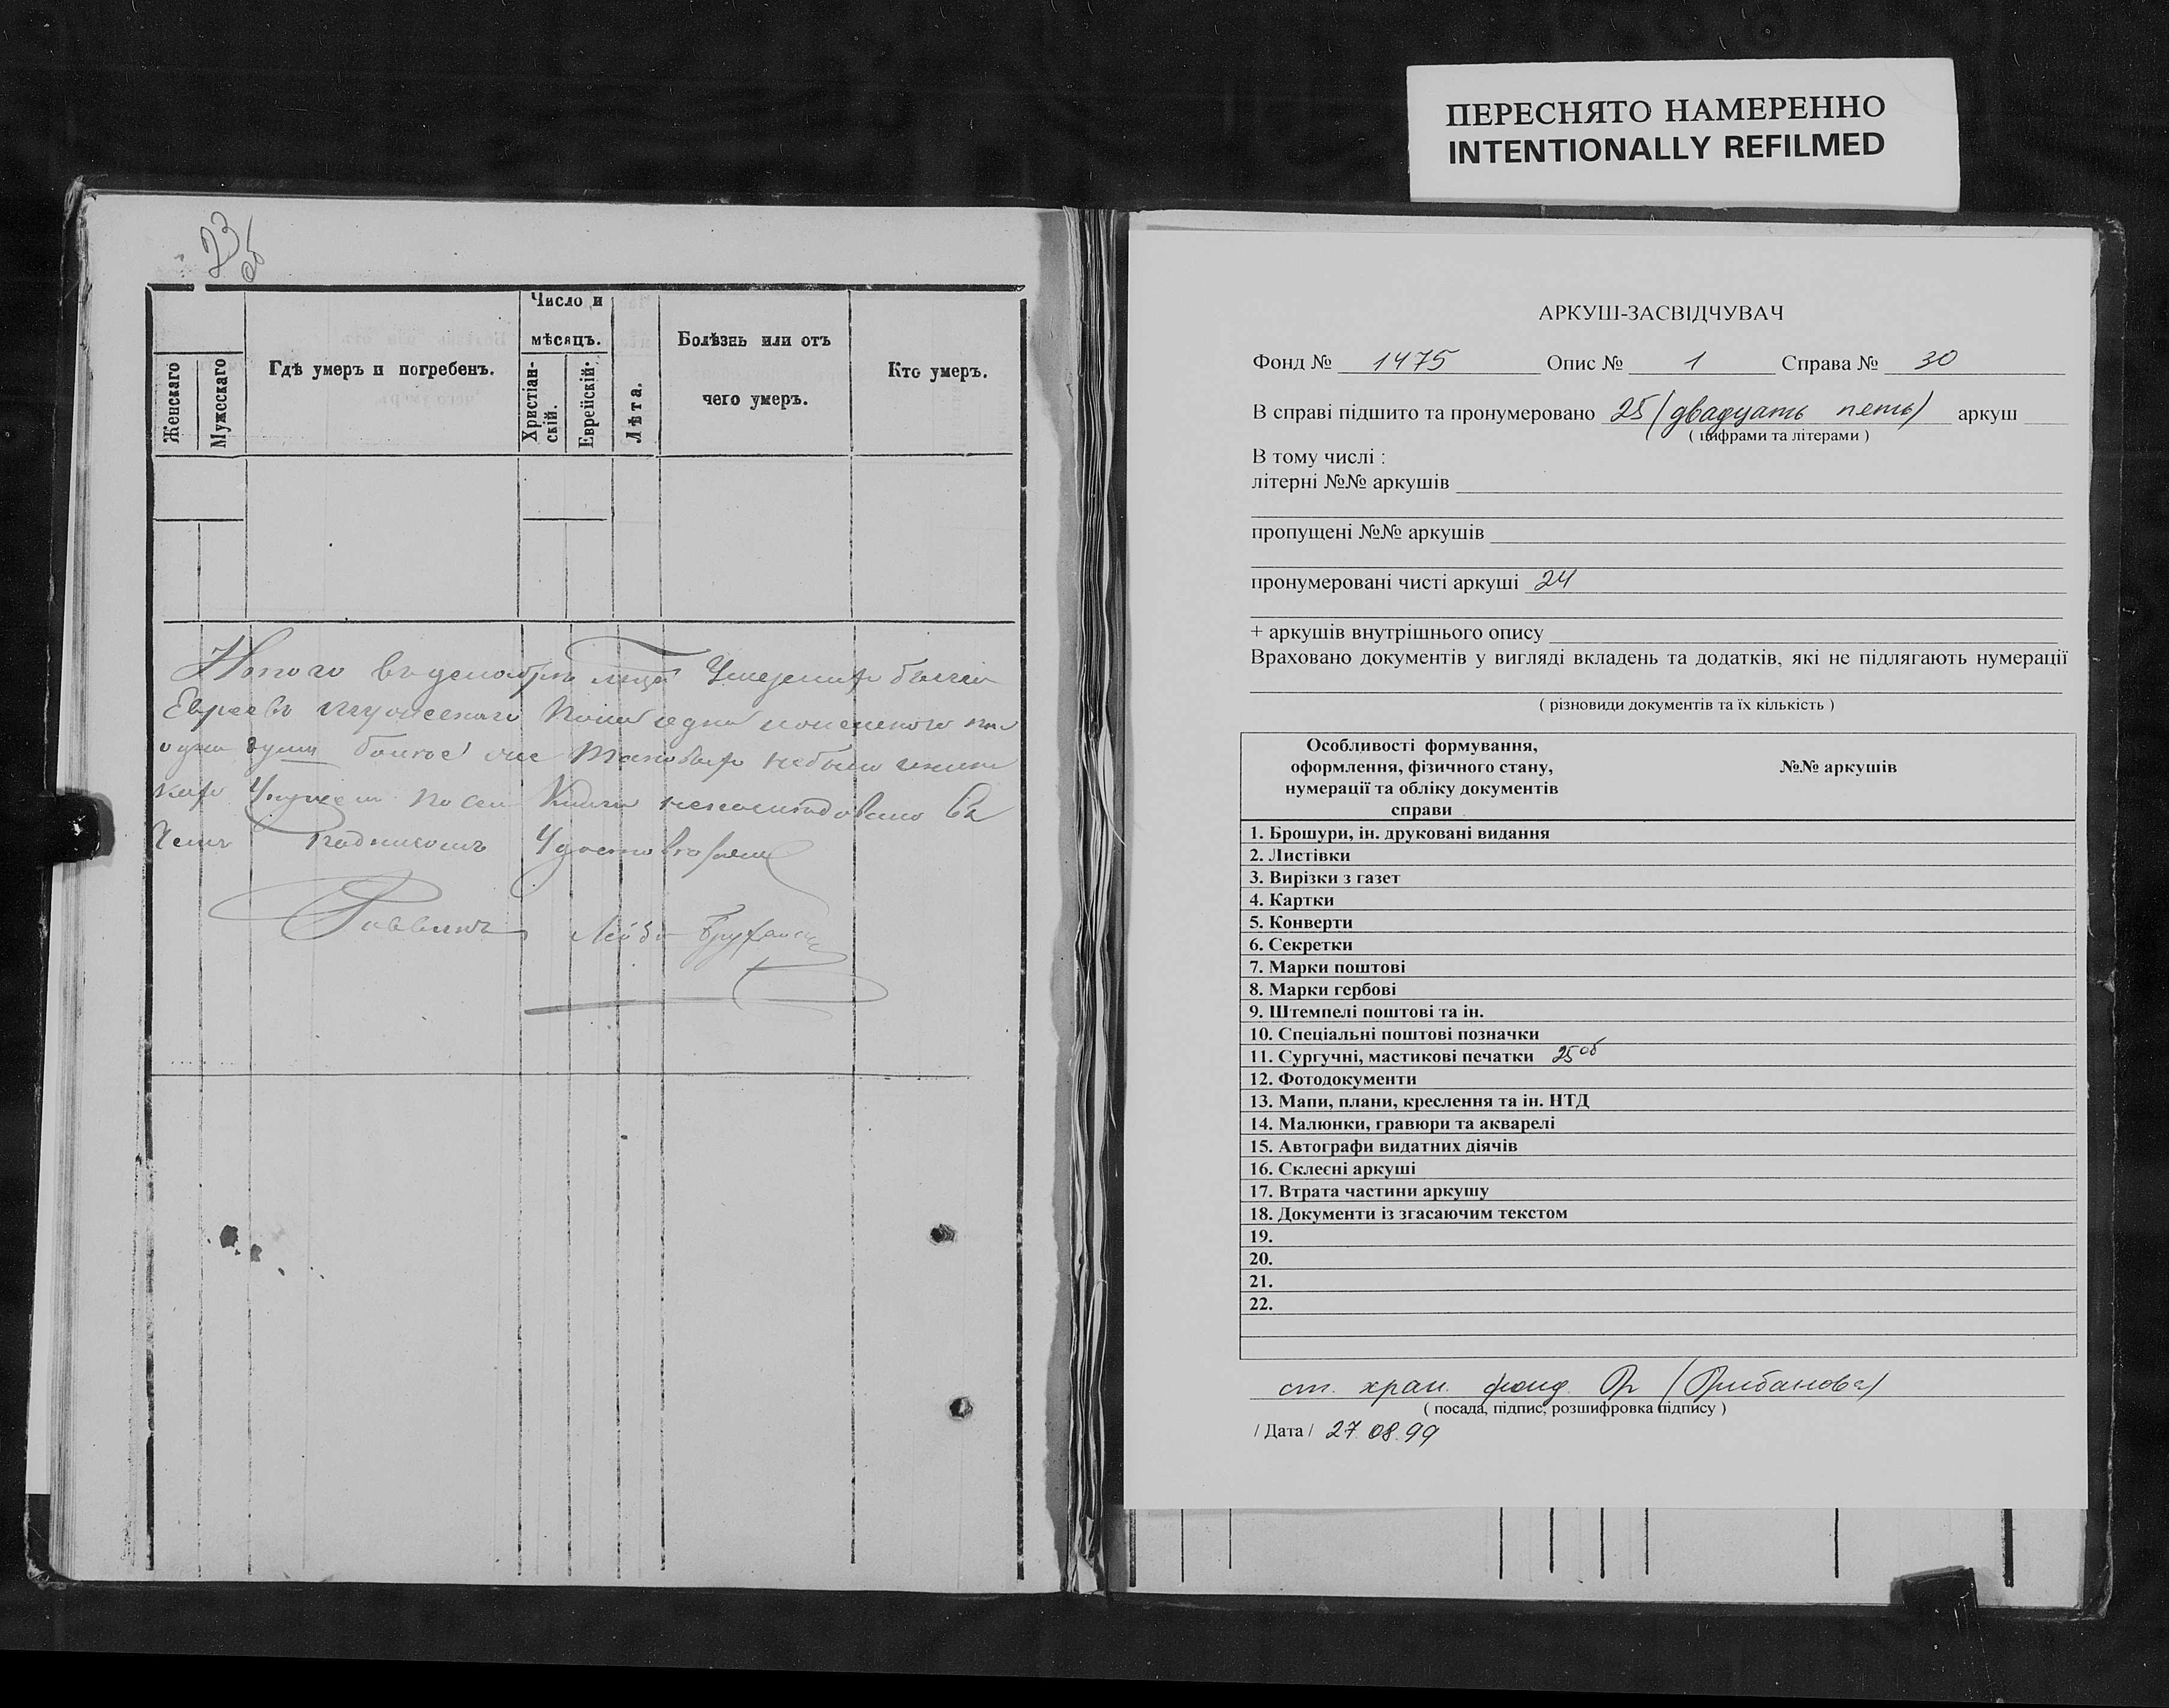 ПЕРЕСНЯТО НАМЕРЕННО
INTENTIONALLY REFILMED
23
об
Женскаго
Мужескаго
Гдѣ умеръ и погребенъ.
Число и
мѣсяцъ.
Христіан-
скій.
Еврейскій.
Лѣта.
Болѣзнь или отъ
чего умеръ.
Кто умеръ.
Итого въ декабрѣ Умершихъ
Евреевъ мужескаго пола женскаго
одна душа более
Книги въ
чемъ подписомъ Удостовѣряемъ
Раввинъ Лейба
АРКУШ-ЗАСВІДЧУВАЧ
Фонд № 1475 Опис № 1 Справа № 30
В справі підшито та пронумеровано 25 (двадцать пять) аркуш
( цифрами та літерами )
В тому числі :
літерні №№ аркушів
пропущені №№ аркушів
пронумеровані чисті аркуші 24
+ аркушів внутрішнього опису
Враховано документів у вигляді вкладень та додатків, які не підлягають нумерації
( різновиди документів та їх кількість )
Особливості формування,
оформлення, фізичного стану,
нумерації та обліку документів
справи
№№ аркушів
1. Брошури, ін. друковані видання
2. Листівки
3. Вирізки з газет
4. Картки
5. Конверти
6. Секретки
7. Марки поштові
8. Марки гербові
9. Штемпелі поштові та ін.
10. Спеціальні поштові позначки
11. Сургучні, мастикові печатки 25об
12. Фотодокументи
13. Мапи, плани, креслення та ін. НТД
14. Малюнки, гравюри та акварелі
15. Автографи видатних діячів
16. Склеєні аркуші
17. Втрата частини аркушу
18. Документи із згасаючим текстом
19.
20.
21.
22.
ст. хран. фонд.
( посада, підпис, розшифровка підпису )
/ Дата / 27.08.99